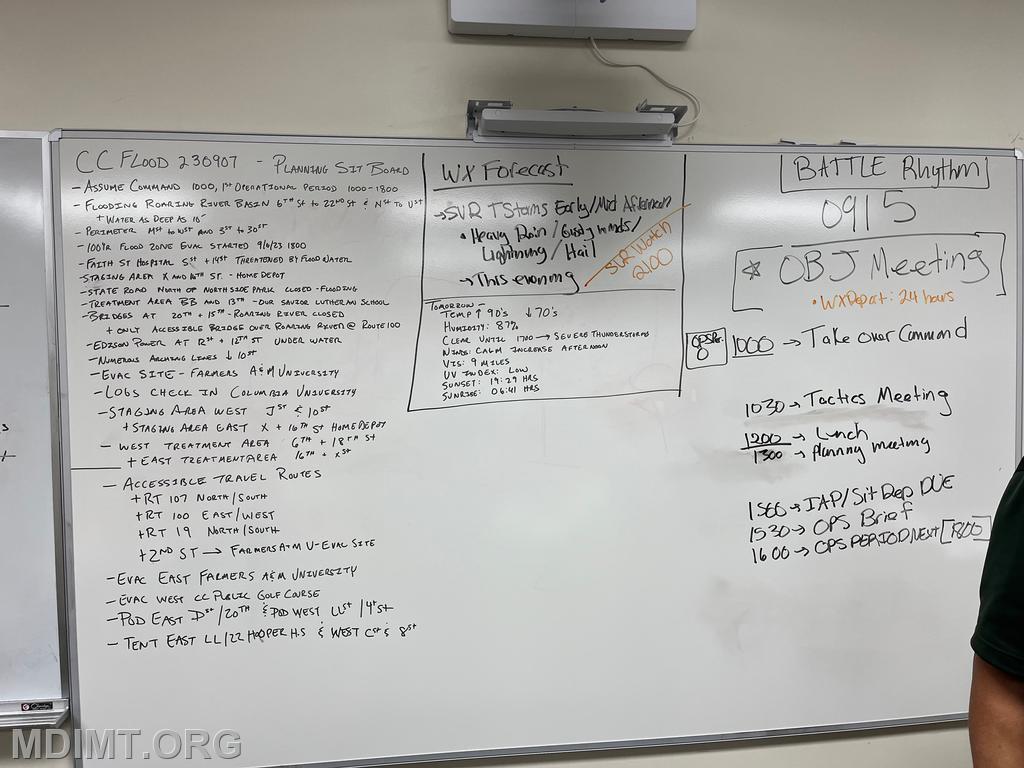 CC FLOOD 230907 - PLANNING SIT BOARD
- ASSUME COMMAND 1000, 1ST OPERATIONAL PERIOD 1000-1800
- FLOODING ROARING RIVER BASIN 6TH ST TO 22ND ST & N ST TO U ST
+ WATER AS DEEP AS 15'
- PERIMETER M ST TO W ST AND 3ST TO 30ST
- 100YR FLOOD ZONE EVAC STARTED 9/6/23 1800
- FAITH ST HOSPITAL S ST + 14ST THREATENED BY FLOOD WATER
- STAGING AREA X AND 16TH ST. - HOME DEPOT
- STATE ROAD NORTH OF NORTHSIDE PARK CLOSED - FLOODING
- TREATMENT AREA BB AND 13TH - OUR SAVIOR LUTHERAN SCHOOL
- BRIDGES AT 20TH + 15TH - ROARING RIVER CLOSED
+ ONLY ACCESSIBLE BRIDGE OVER ROARING RIVER @ ROUTE 100
- EDISON POWER AT R ST + 12TH ST UNDER WATER
- NUMEROUS ARCHING LINES ↓ 10ST
- EVAC SITE - FARMERS A&M UNIVERSITY
- LOGS CHECK IN COLUMBIA UNIVERSITY
- STAGING AREA WEST J ST & 10ST
+ STAGING AREA EAST X + 16TH ST HOME DEPOT
- WEST TREATMENT AREA 6TH + 18TH ST
+ EAST TREATMENT AREA 16TH + X ST
- ACCESSIBLE TRAVEL ROUTES
+ RT 107 NORTH/SOUTH
+ RT 100 EAST/WEST
+ RT 19 NORTH/SOUTH
+ 2ND ST → FARMERS A+M U - EVAC SITE
- EVAC EAST FARMERS A&M UNIVERSITY
- EVAC WEST CC PUBLIC GOLF COURSE
- POD EAST D ST/20TH & POD WEST LL ST/4ST
- TENT EAST LL/22 HOOPER H.S & WEST C ST & 8ST
WX Forecast
→ SVR TStorms Early/Mid Afternoon
• Heavy Rain/Gusty winds/
Lightning/Hail
→ This evening
SVR Watch
2100
TOMORROW -
TEMP ↑ 90'S ↓ 70'S
HUMIDITY: 87%
CLEAR UNTIL 1700 → SEVERE THUNDERSTORMS
WINDS: CALM INCREASE AFTERNOON
VIS: 9 MILES
UV INDEX: LOW
SUNSET: 19:29 HRS
SUNRISE: 06:41 HRS
BATTLE Rhythm
0915
OBJ Meeting
• WX Report: 24 hours
OPS Per.
1000 → Take over Command
1030 → Tactics Meeting
1200 → Lunch
1300 → Planning meeting
1500 → IAP/Sit Rep DUE
1530 → OPS Brief
1600 → OPS PERIOD NEXT 1800
MDIMT.ORG